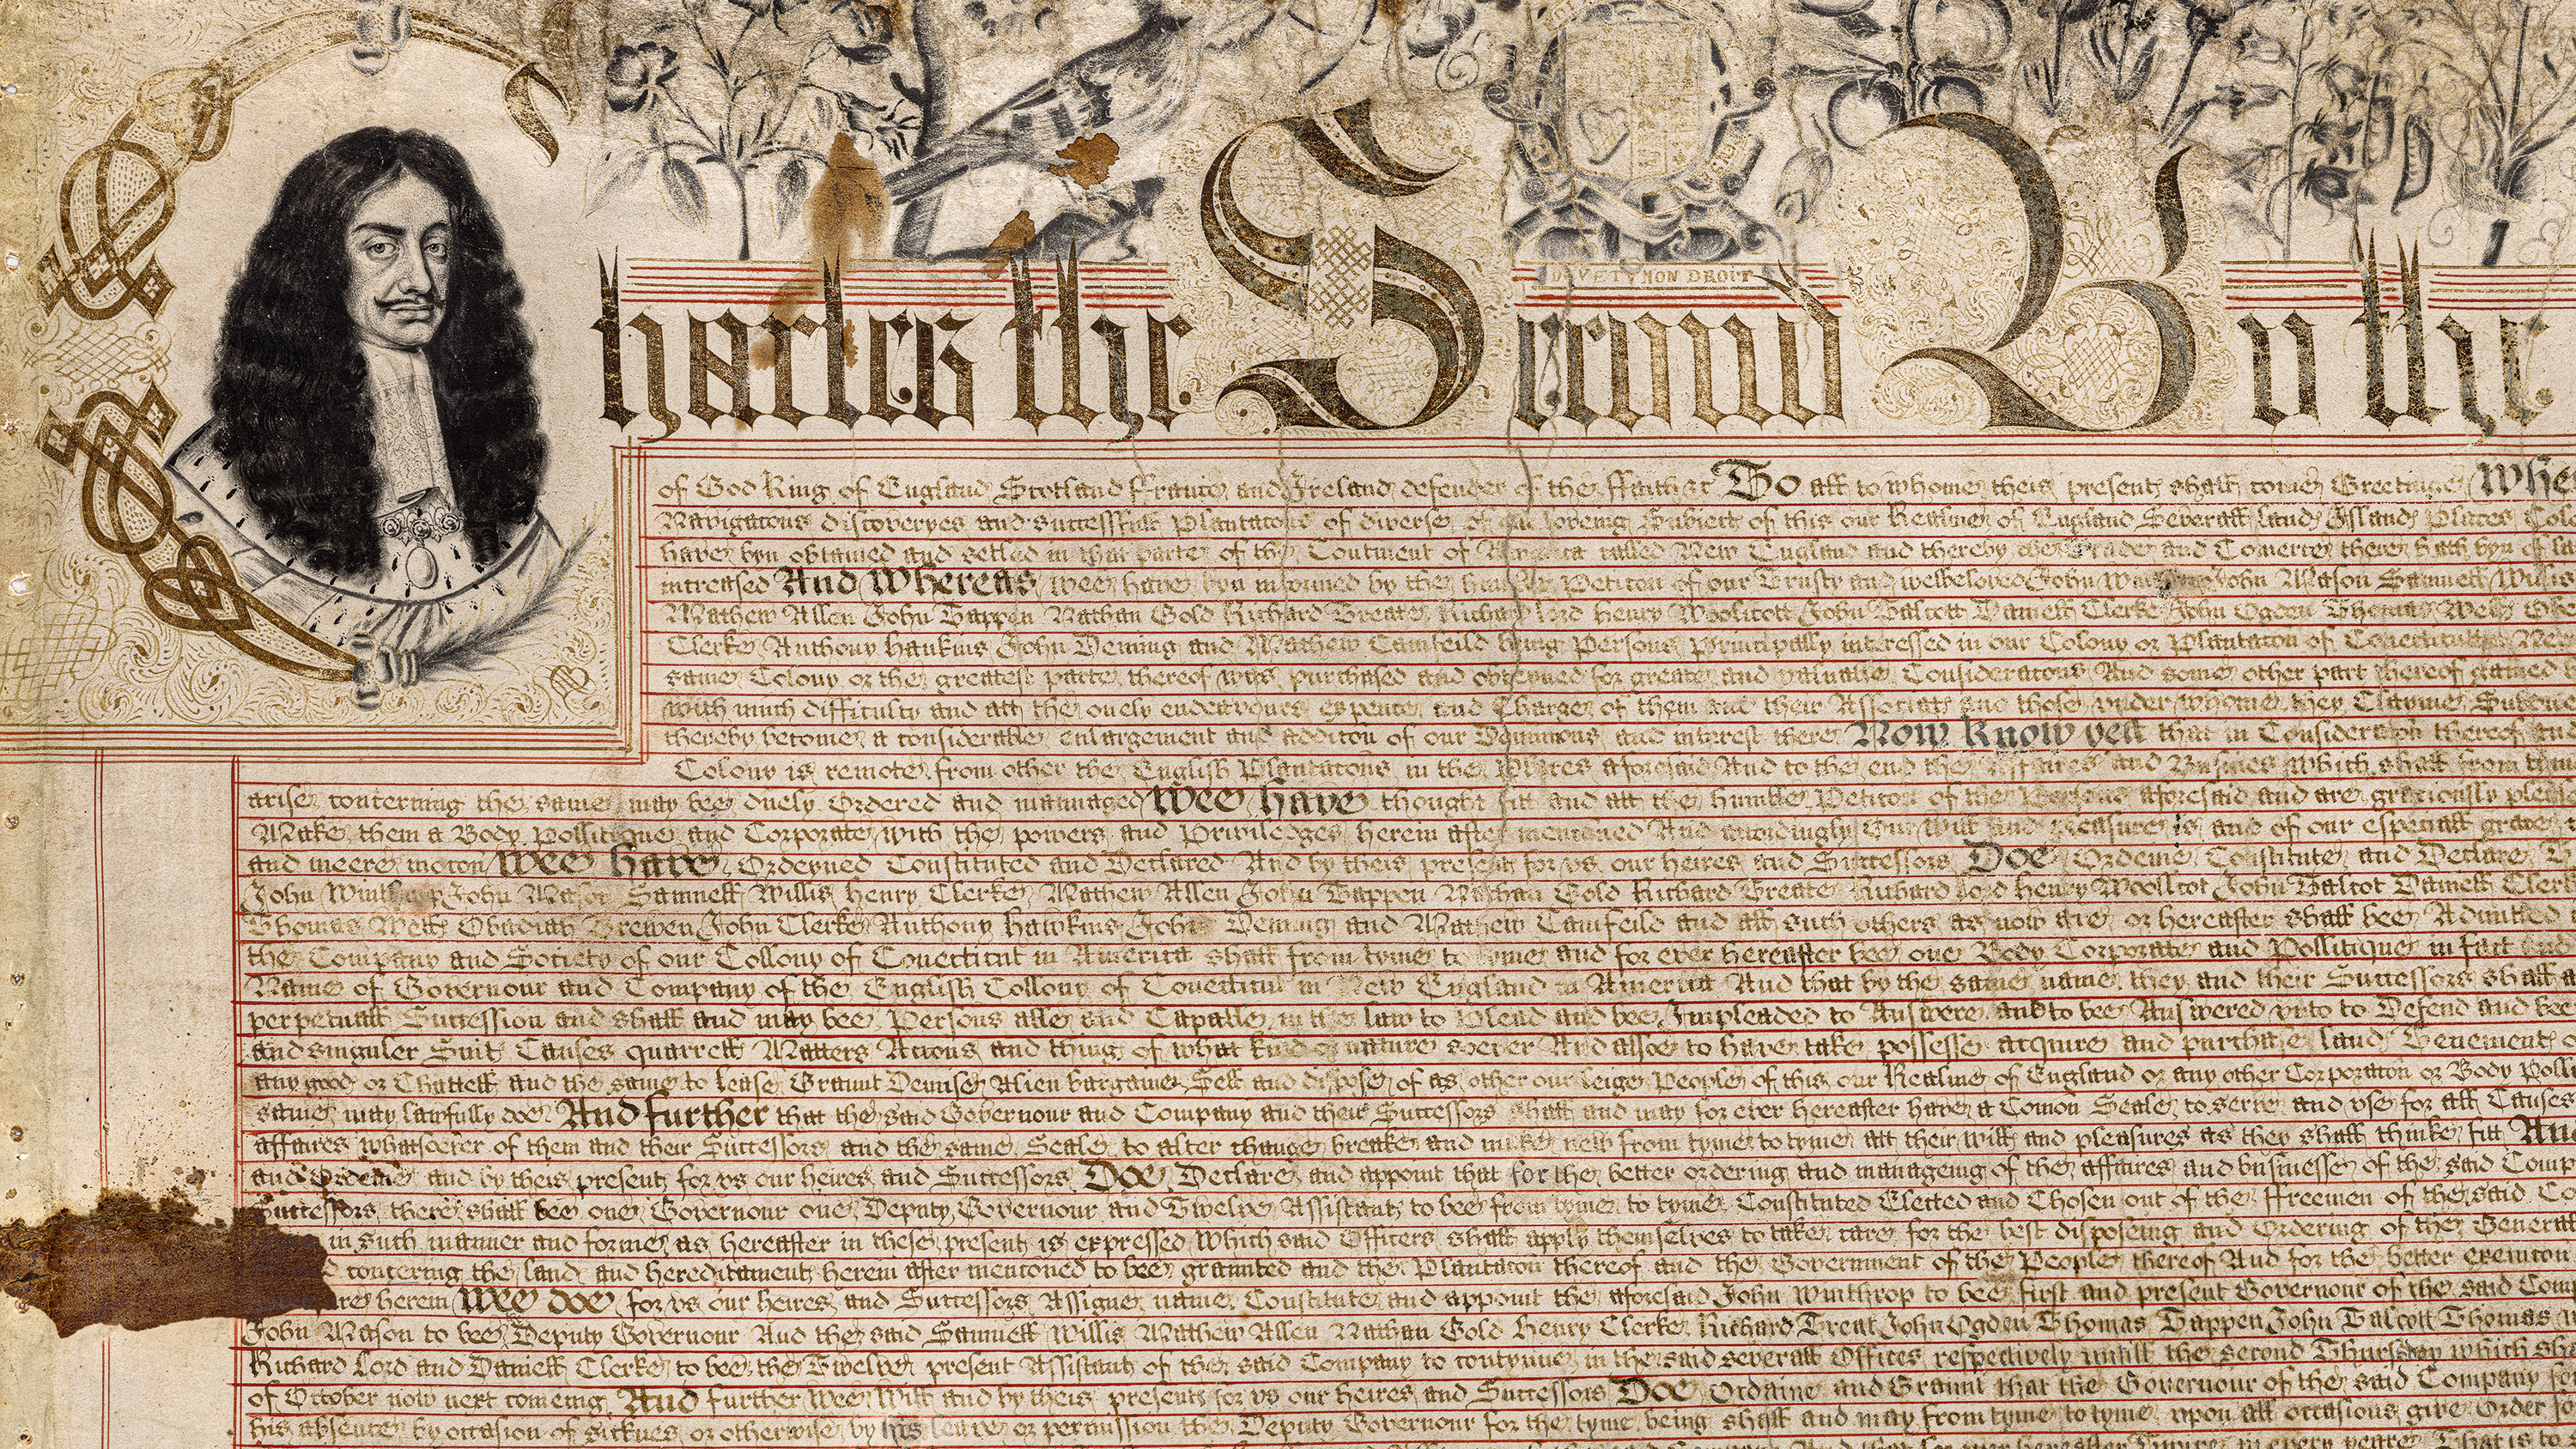 DIEV ET MON DROIT
Charles the Second By the
of God King of England Scotland France and Ireland defender of the ffaith &c To all to whome theis present shall come Greetinge Whe
Navigatons discoveryes and successfull Plantatons of diverse of our loveing Subiect of this our Realme of England Severall land Island Places Col
have byn obtained and setled in that parte of the Continent of America called New England and thereby the Trade and Comerce there hath byn of la
increased And Whereas wee have byn informed by the humble Petiton of our Trusty and welbeloved John Winthrop John Mason Samuell Willis
Mathew Allen John Tappen Nathan Gold Richard Treate Richard Lord Henry Woolicott John Talcott Daniell Clerke John Ogden Thomas Wells Oba
Clerke Anthony Haukins John Deming and Mathew Camfeild being Persons Principally interessed in our Colony or Plantaton of Conecticutt New
same Colony or the greatest parte thereof was purchased and obteyned for greate and valuable Consideratons And some other part thereof gained
with much difficulty and att the onely endeavours expence and Charge of them and their Associats and those vnder whome they Clayme Subdued
thereby become a considerable enlargement and additon of our Dominions and interest there Now Know yea that in Consideraton thereof and
Colony is remote from other the English Plantatons in the Places aforesaid And to the end the Affaires and Busines which shall from tyme
arise concerning the same may bee duely Ordered and mannaged Wee have thought fitt and att the humble Petiton of the Persons aforesaid and are graciously pleas
Make them a Body Pollitique and Corporate with the powers and Priviledges herein after mentioned And accordingly Our Will and pleasure is and of our especiall grace
and meere moton Wee have Ordeyned Constituted and Declared And by theis present for vs our heires and Successors Doe Ordeine Constitute and Declare T
John Winthrop John Mason Samuell Willis Henry Clerke Mathew Allen John Tappen Nathan Gold Richard Treate Richard Lord Henry Woollcot John Talcot Daniell Clerk
Thomas Wells Obadiah Brewen John Clerke Anthony Hawkins John Deming and Mathew Camfeild and all such others as now are or hereafter shall bee Admitted
the Company and Society of our Collony of Conecticut in America shall from tyme to tyme and for ever hereafter bee one Body Corporate and Pollitique in fact and
Name of Governour and Company of the English Collony of Conecticut in New England in America And that by the same name they and their Successors shall a
perpetuall Succession and shall and may bee Persons able and Capable in the law to Plead and bee Impleaded to Answere and to bee Answered vnto to Defend and bee
and singuler Suit Causes quarrell Matters Actons and thing of what kind or nature soever And alsoe to have take possesse acquire and purchase land Tenement o
any good or Chattell and the same to lease Graunt Demise Alien bargaine Sell and dispose of as other our leige People of this our Realme of England or any other Corporaton or Body Polli
same may lawfully doe And further that the said Governour and Company and their Successors shall and may for ever hereafter have a Comon Seale to serve and vse for all Causes
affaires whatsoever of them and their Successors and the same Seale to alter change breake and make new from tyme to tyme att their will and pleasures as they shall thinke fitt And
and Ordeine and by theis present for vs our heires and Successors Doe Declare and appoint that for the better ordering and manageing of the affaires and businesse of the said Comp
Successors there shall bee one Governour one Deputy Governour and Twelve Assistants to bee from tyme to tyme Constituted Elected and Chosen out of the ffreemen of the said Co
in such manner and forme as hereafter in these present is expressed Which said Officers shall apply themselves to take care for the best disposeing and Ordering of the Generall
concerning the land and hereditament herein after mentioned to bee graunted and the Plantaton thereof and the Government of the People thereof And for the better execution
herein Wee doe for vs our heires and Successors Assigne name Constitute and appoint the aforesaid John Winthrop to bee first and present Governour of the said Com
John Mason to bee Deputy Governour And the said Samuell Willis Mathew Allen Nathan Gold Henry Clerke Richard Treat John Ogden Thomas Tappen John Talcott Thomas
Richard Lord and Daniell Clerke to bee the Twelve present Assistant of the said Company to contynue in the said severall Offices respectively untill the second Thursday which sha
of October now next comeing And further Wee Will and by theis present for vs our heires and Successors Doe Ordaine and Graunt that the Governour of the said Company for
his absence by occasion of sicknes or otherwise by his leave or permission the Deputy Governour for the tyme being shall and may from tyme to tyme vpon all occasions give Order fo